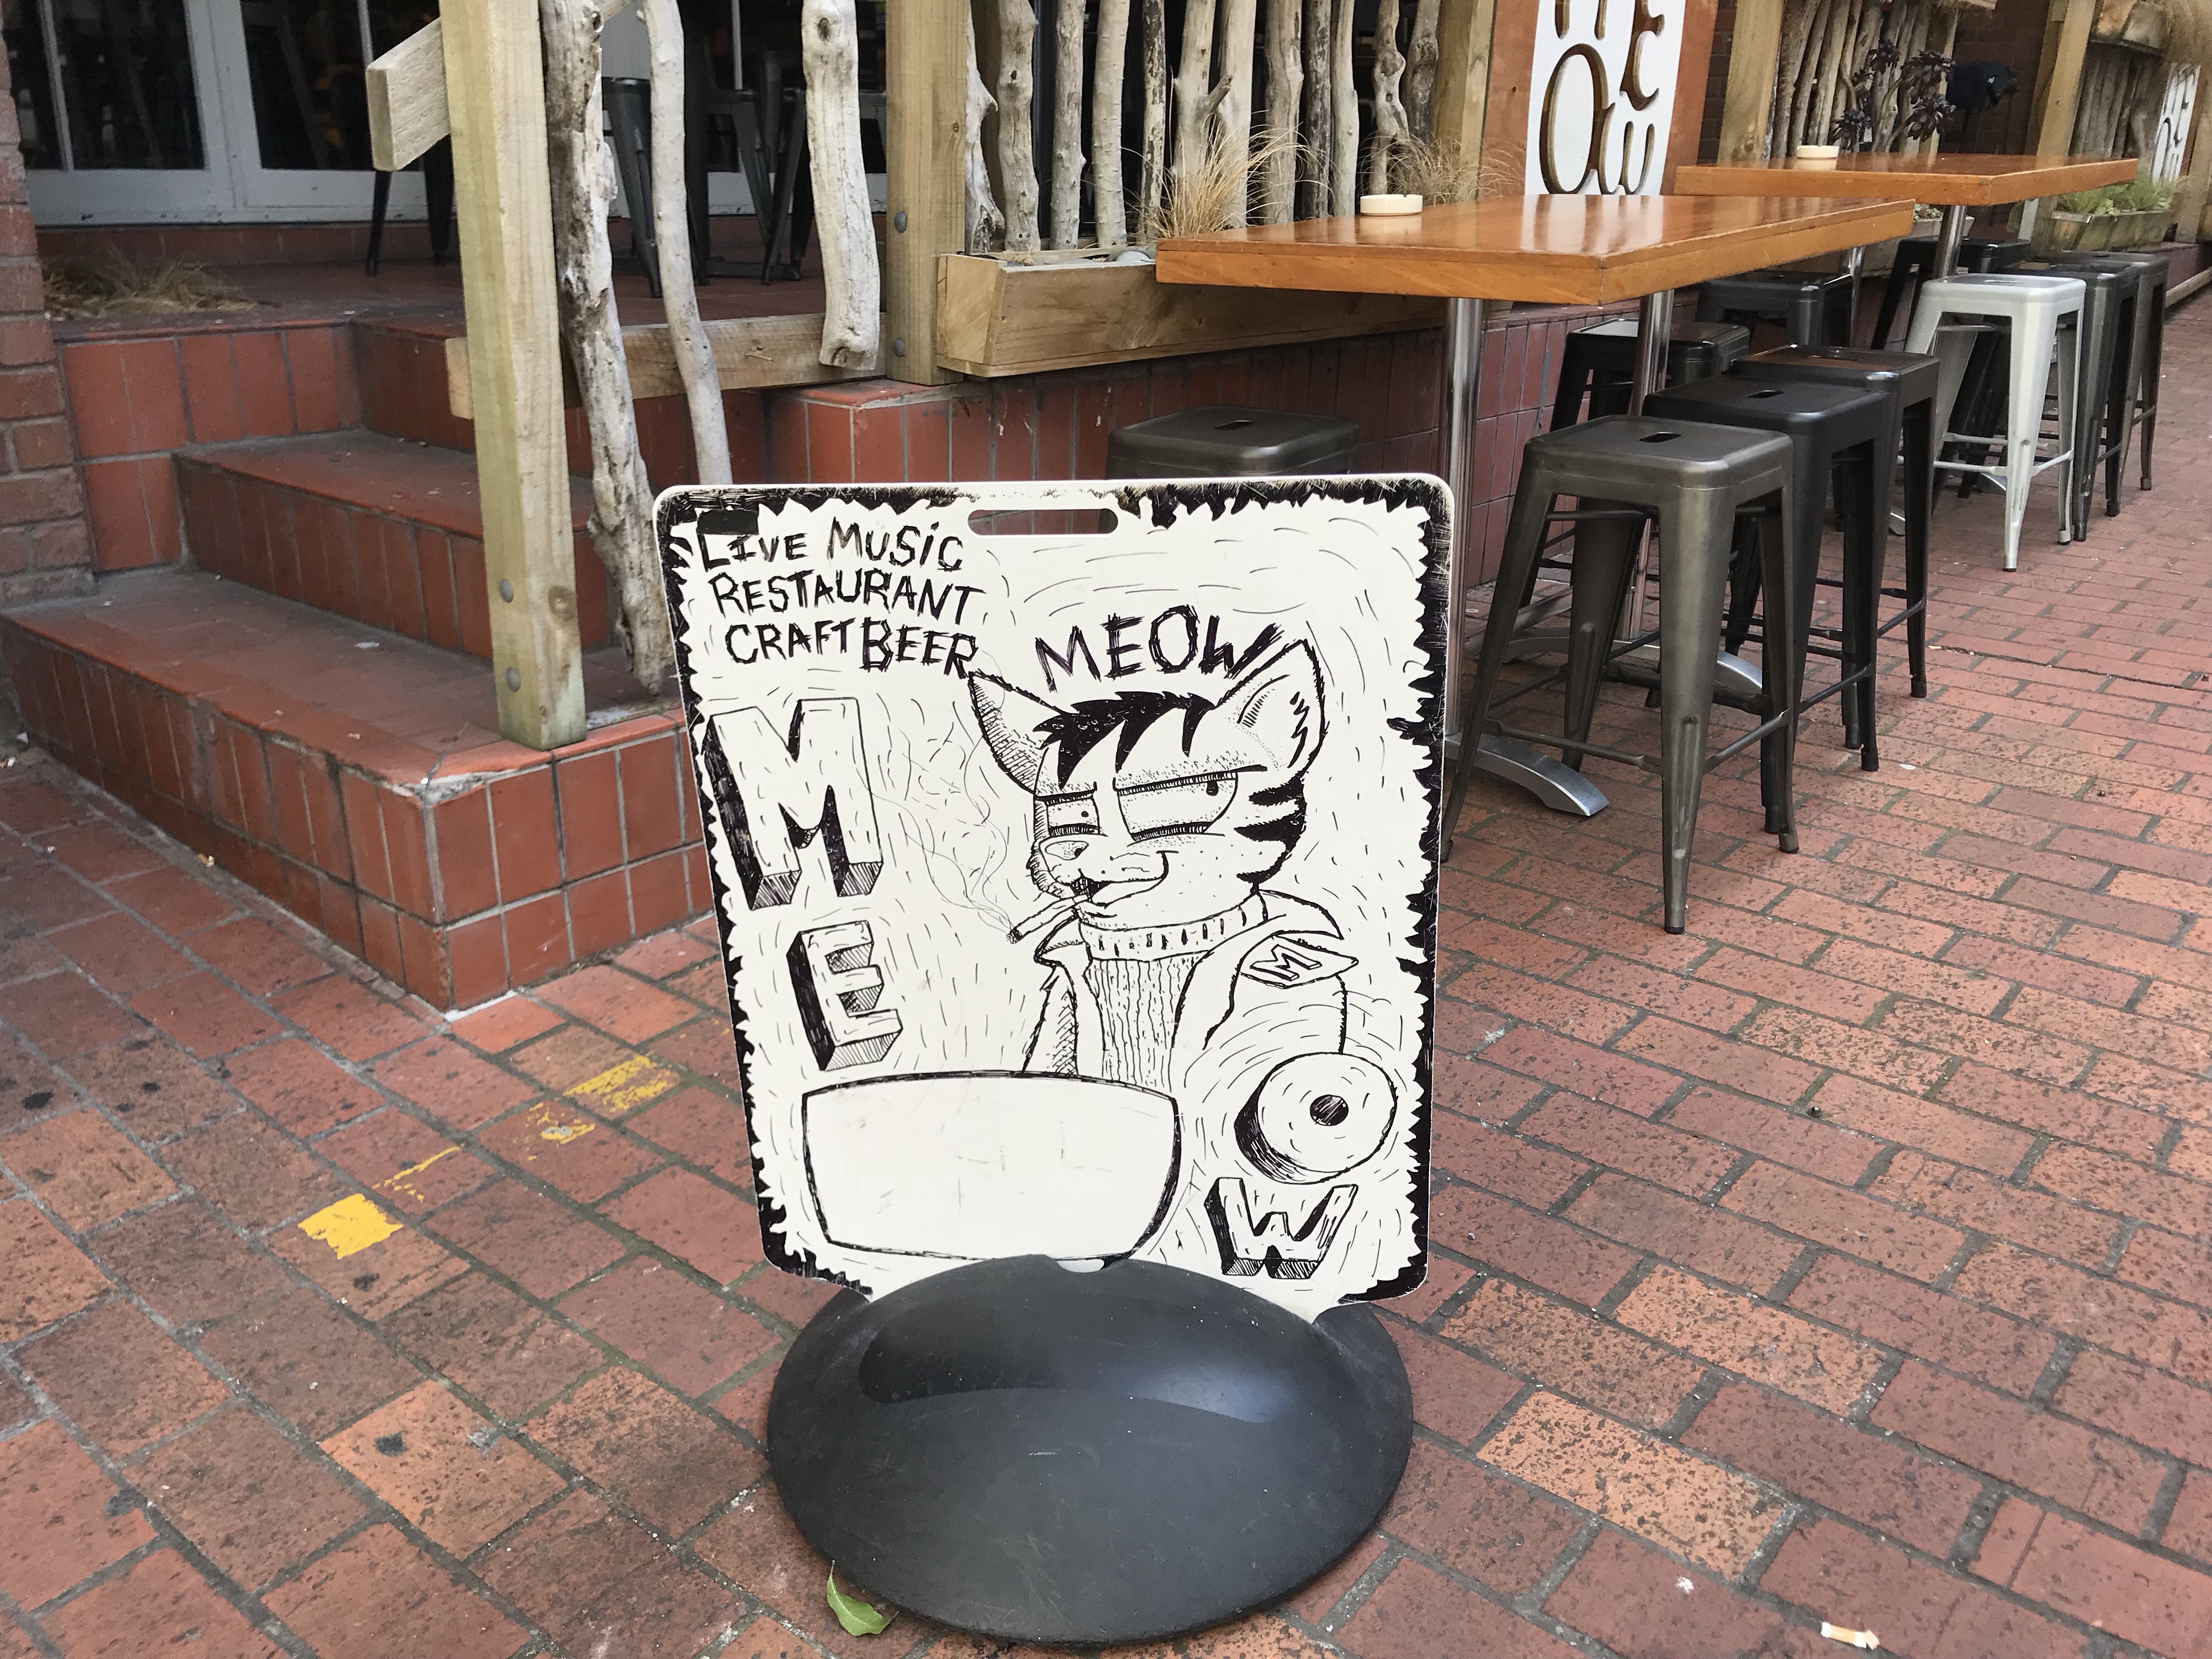 LIVE MUSIC
RESTAURANT
CRAFT BEER
MEOW
M
E
M
O
W